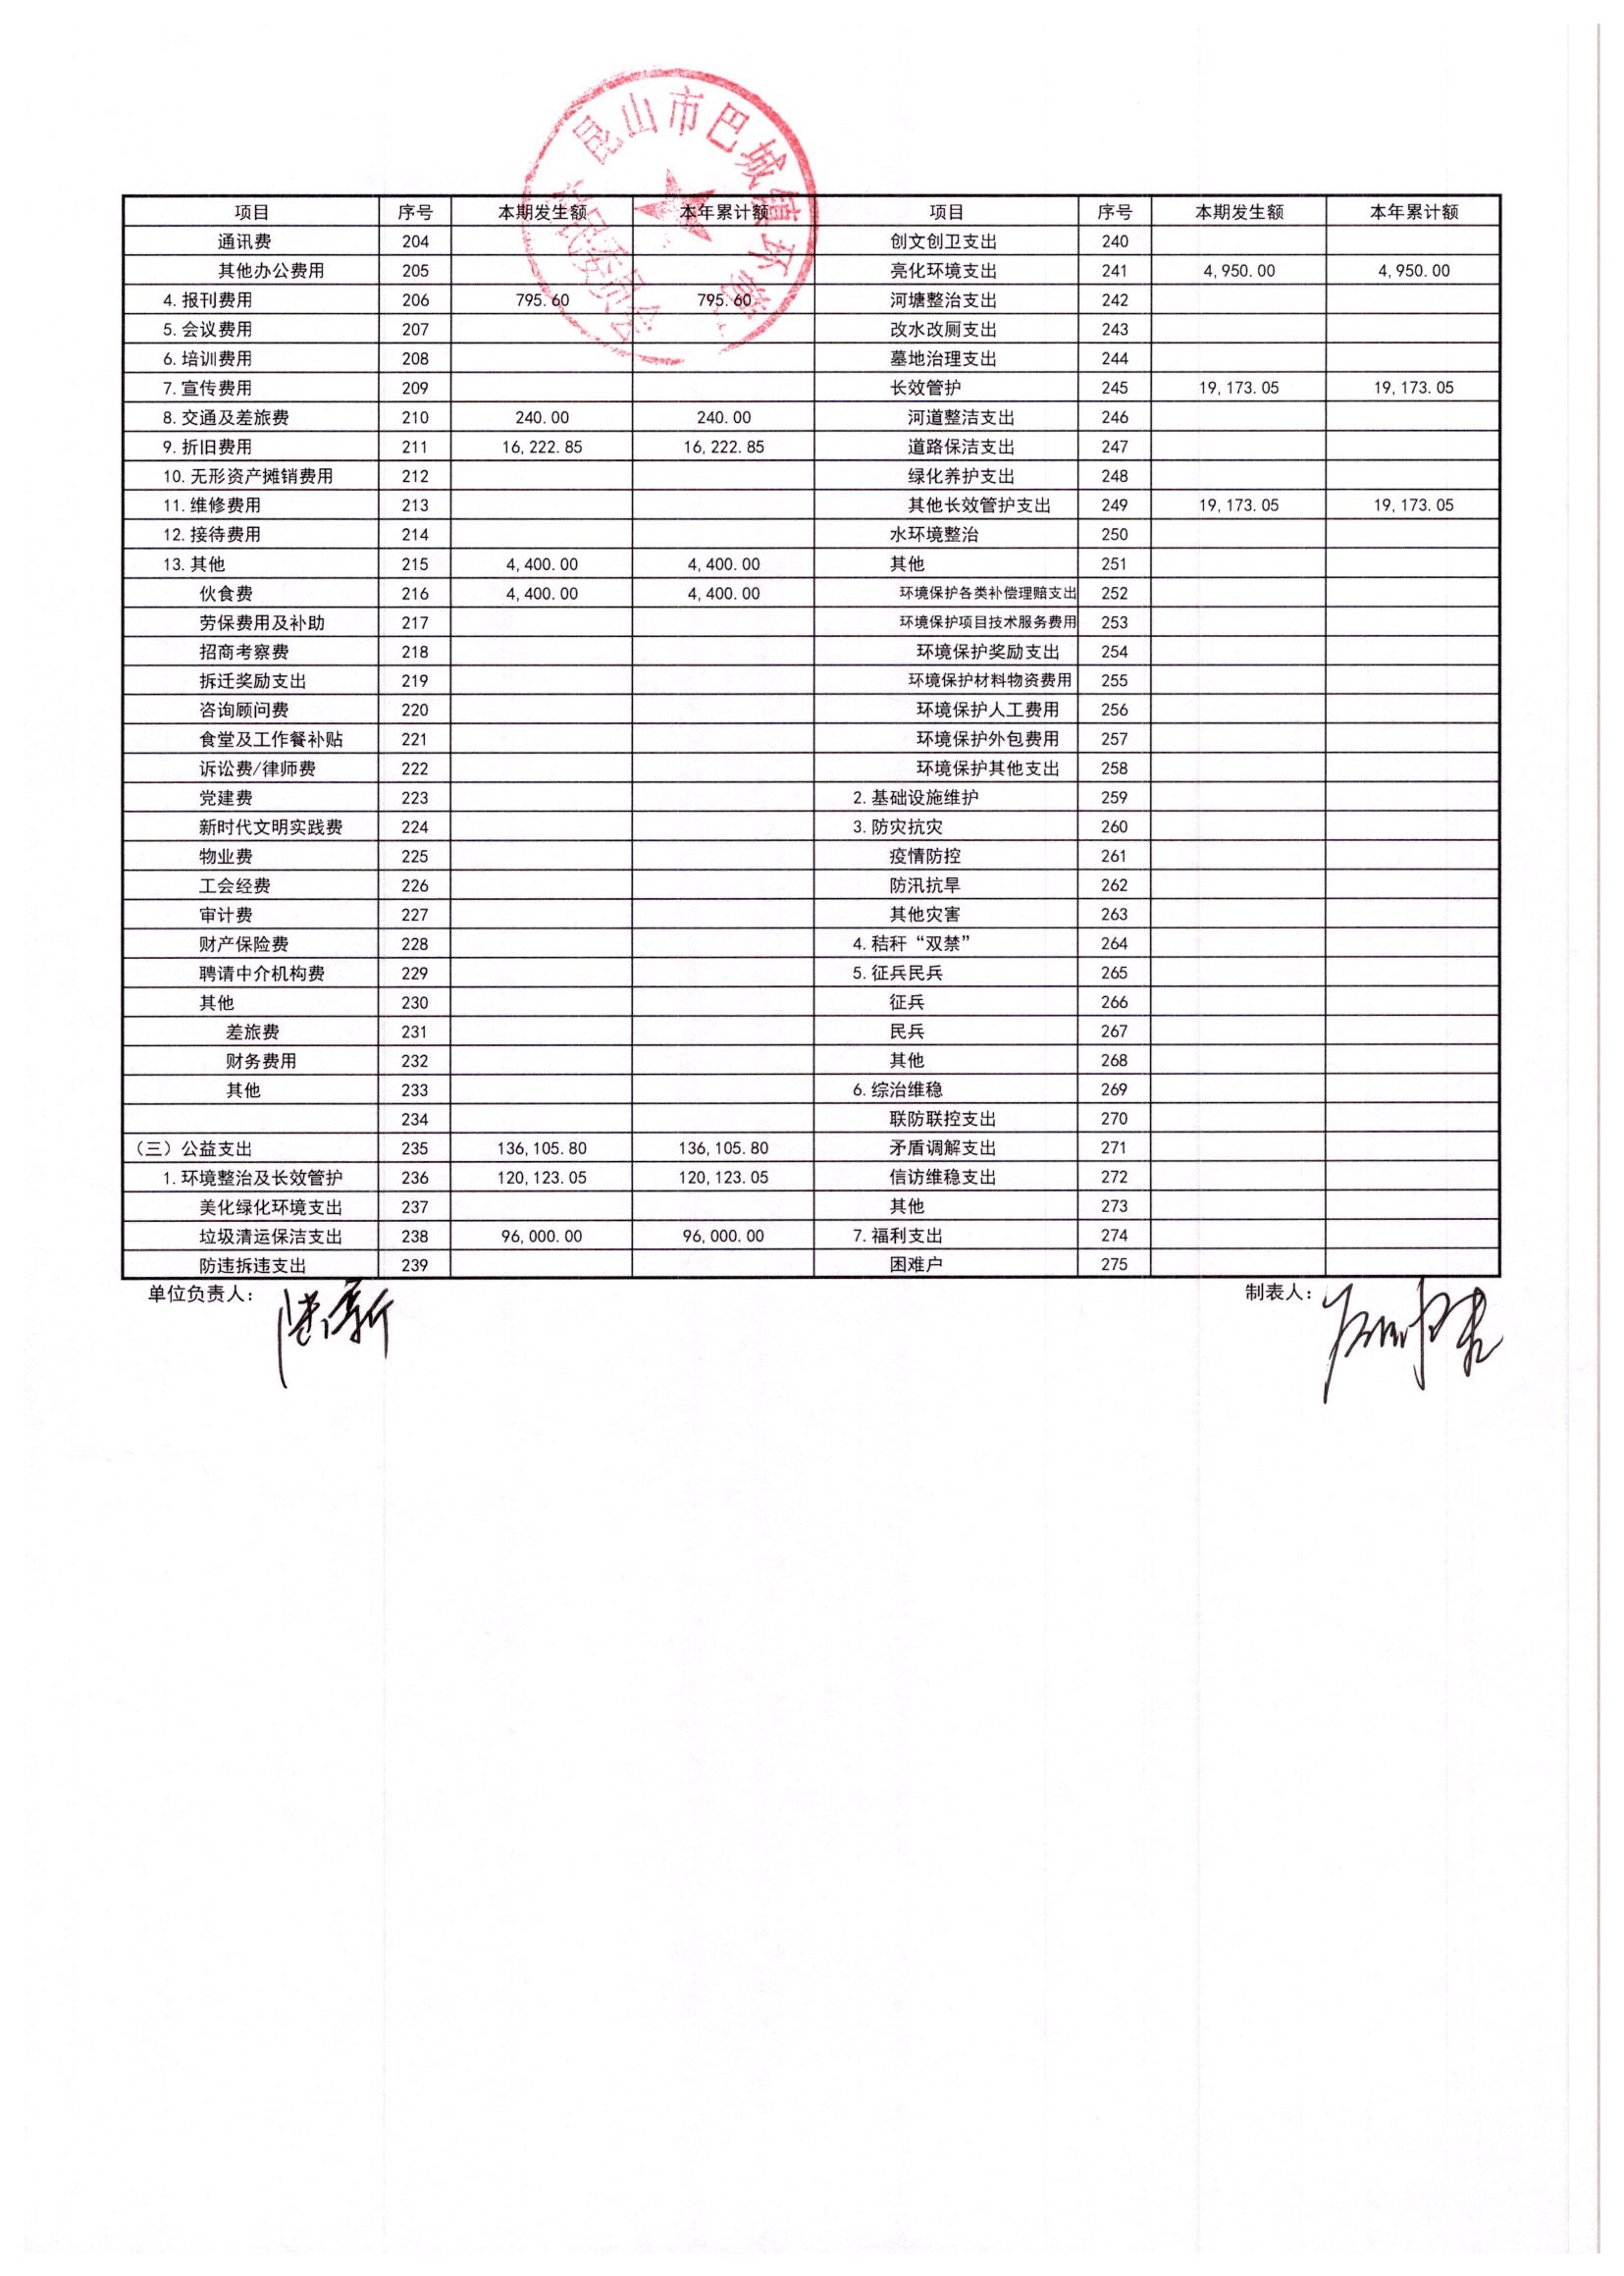 昆山市巴城镇环湖村村民委员会
项目 序号 本期发生额 本年累计额 项目 序号 本期发生额 本年累计额
通讯费 204 创文创卫支出 240
其他办公费用 205 亮化环境支出 241 4,950.00 4,950.00
4.报刊费用 206 795.60 795.60 河塘整治支出 242
5.会议费用 207 改水改厕支出 243
6.培训费用 208 墓地治理支出 244
7.宣传费用 209 长效管护 245 19,173.05 19,173.05
8.交通及差旅费 210 240.00 240.00 河道整洁支出 246
9.折旧费用 211 16,222.85 16,222.85 道路保洁支出 247
10.无形资产摊销费用 212 绿化养护支出 248
11.维修费用 213 其他长效管护支出 249 19,173.05 19,173.05
12.接待费用 214 水环境整治 250
13.其他 215 4,400.00 4,400.00 其他 251
伙食费 216 4,400.00 4,400.00 环境保护各类补偿理赔支出 252
劳保费用及补助 217 环境保护项目技术服务费用 253
招商考察费 218 环境保护奖励支出 254
拆迁奖励支出 219 环境保护材料物资费用 255
咨询顾问费 220 环境保护人工费用 256
食堂及工作餐补贴 221 环境保护外包费用 257
诉讼费/律师费 222 环境保护其他支出 258
党建费 223 2.基础设施维护 259
新时代文明实践费 224 3.防灾抗灾 260
物业费 225 疫情防控 261
工会经费 226 防汛抗旱 262
审计费 227 其他灾害 263
财产保险费 228 4.秸秆“双禁” 264
聘请中介机构费 229 5.征兵民兵 265
其他 230 征兵 266
差旅费 231 民兵 267
财务费用 232 其他 268
其他 233 6.综治维稳 269
234 联防联控支出 270
（三）公益支出 235 136,105.80 136,105.80 矛盾调解支出 271
1.环境整治及长效管护 236 120,123.05 120,123.05 信访维稳支出 272
美化绿化环境支出 237 其他 273
垃圾清运保洁支出 238 96,000.00 96,000.00 7.福利支出 274
防违拆违支出 239 困难户 275
单位负责人： 制表人：